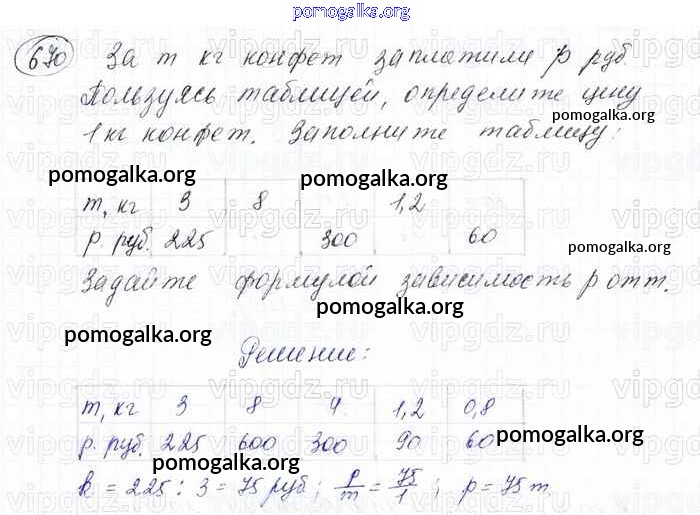 pomogalka.org
670 За m кг конфет заплатили p руб.
Пользуясь таблицей, определите цену
1 кг конфет. Заполните таблицу:
pomogalka.org pomogalka.org
m, кг 3 8 1,2
p. руб. 225 300 60
pomogalka.org
Задайте формулой зависимость p от m.
pomogalka.org
pomogalka.org
Решение:
m, кг 3 8 4 1,2 0,8
p. руб. 225 600 300 90 60
pomogalka.org
pomogalka.org
k = 225 : 3 = 75 руб ; p/m = 75/1 ; p = 75 m